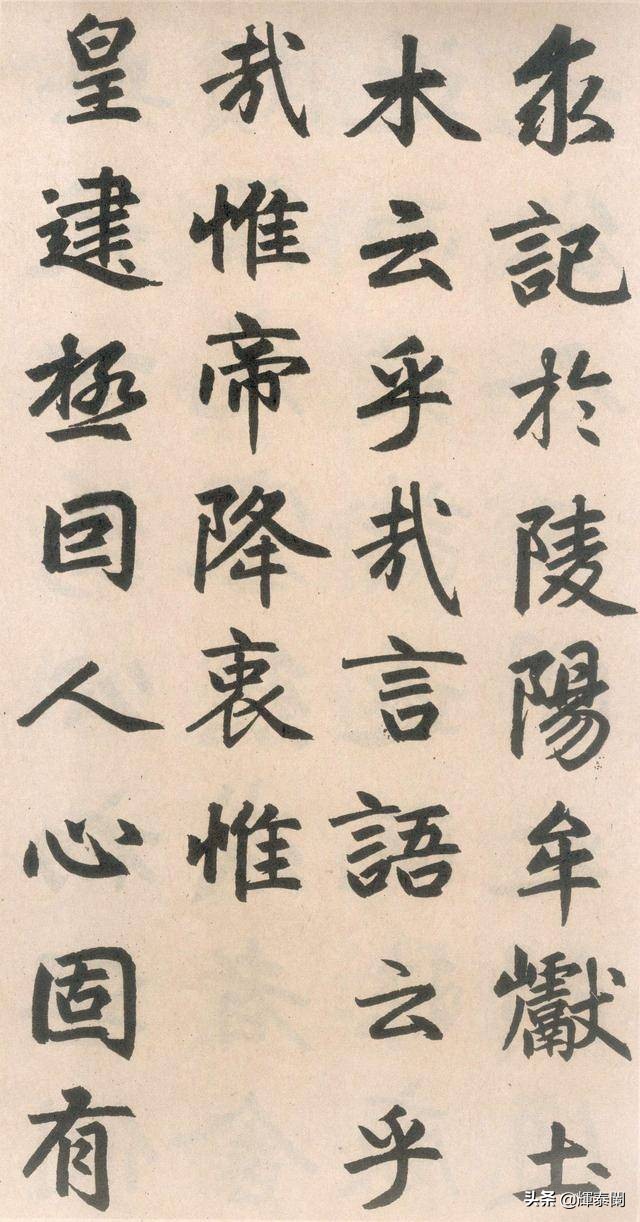 求記於陵陽牟巘土
木云乎哉言語云乎
哉惟帝降衷惟
皇建極因人心固有
头条 @輝泰閣